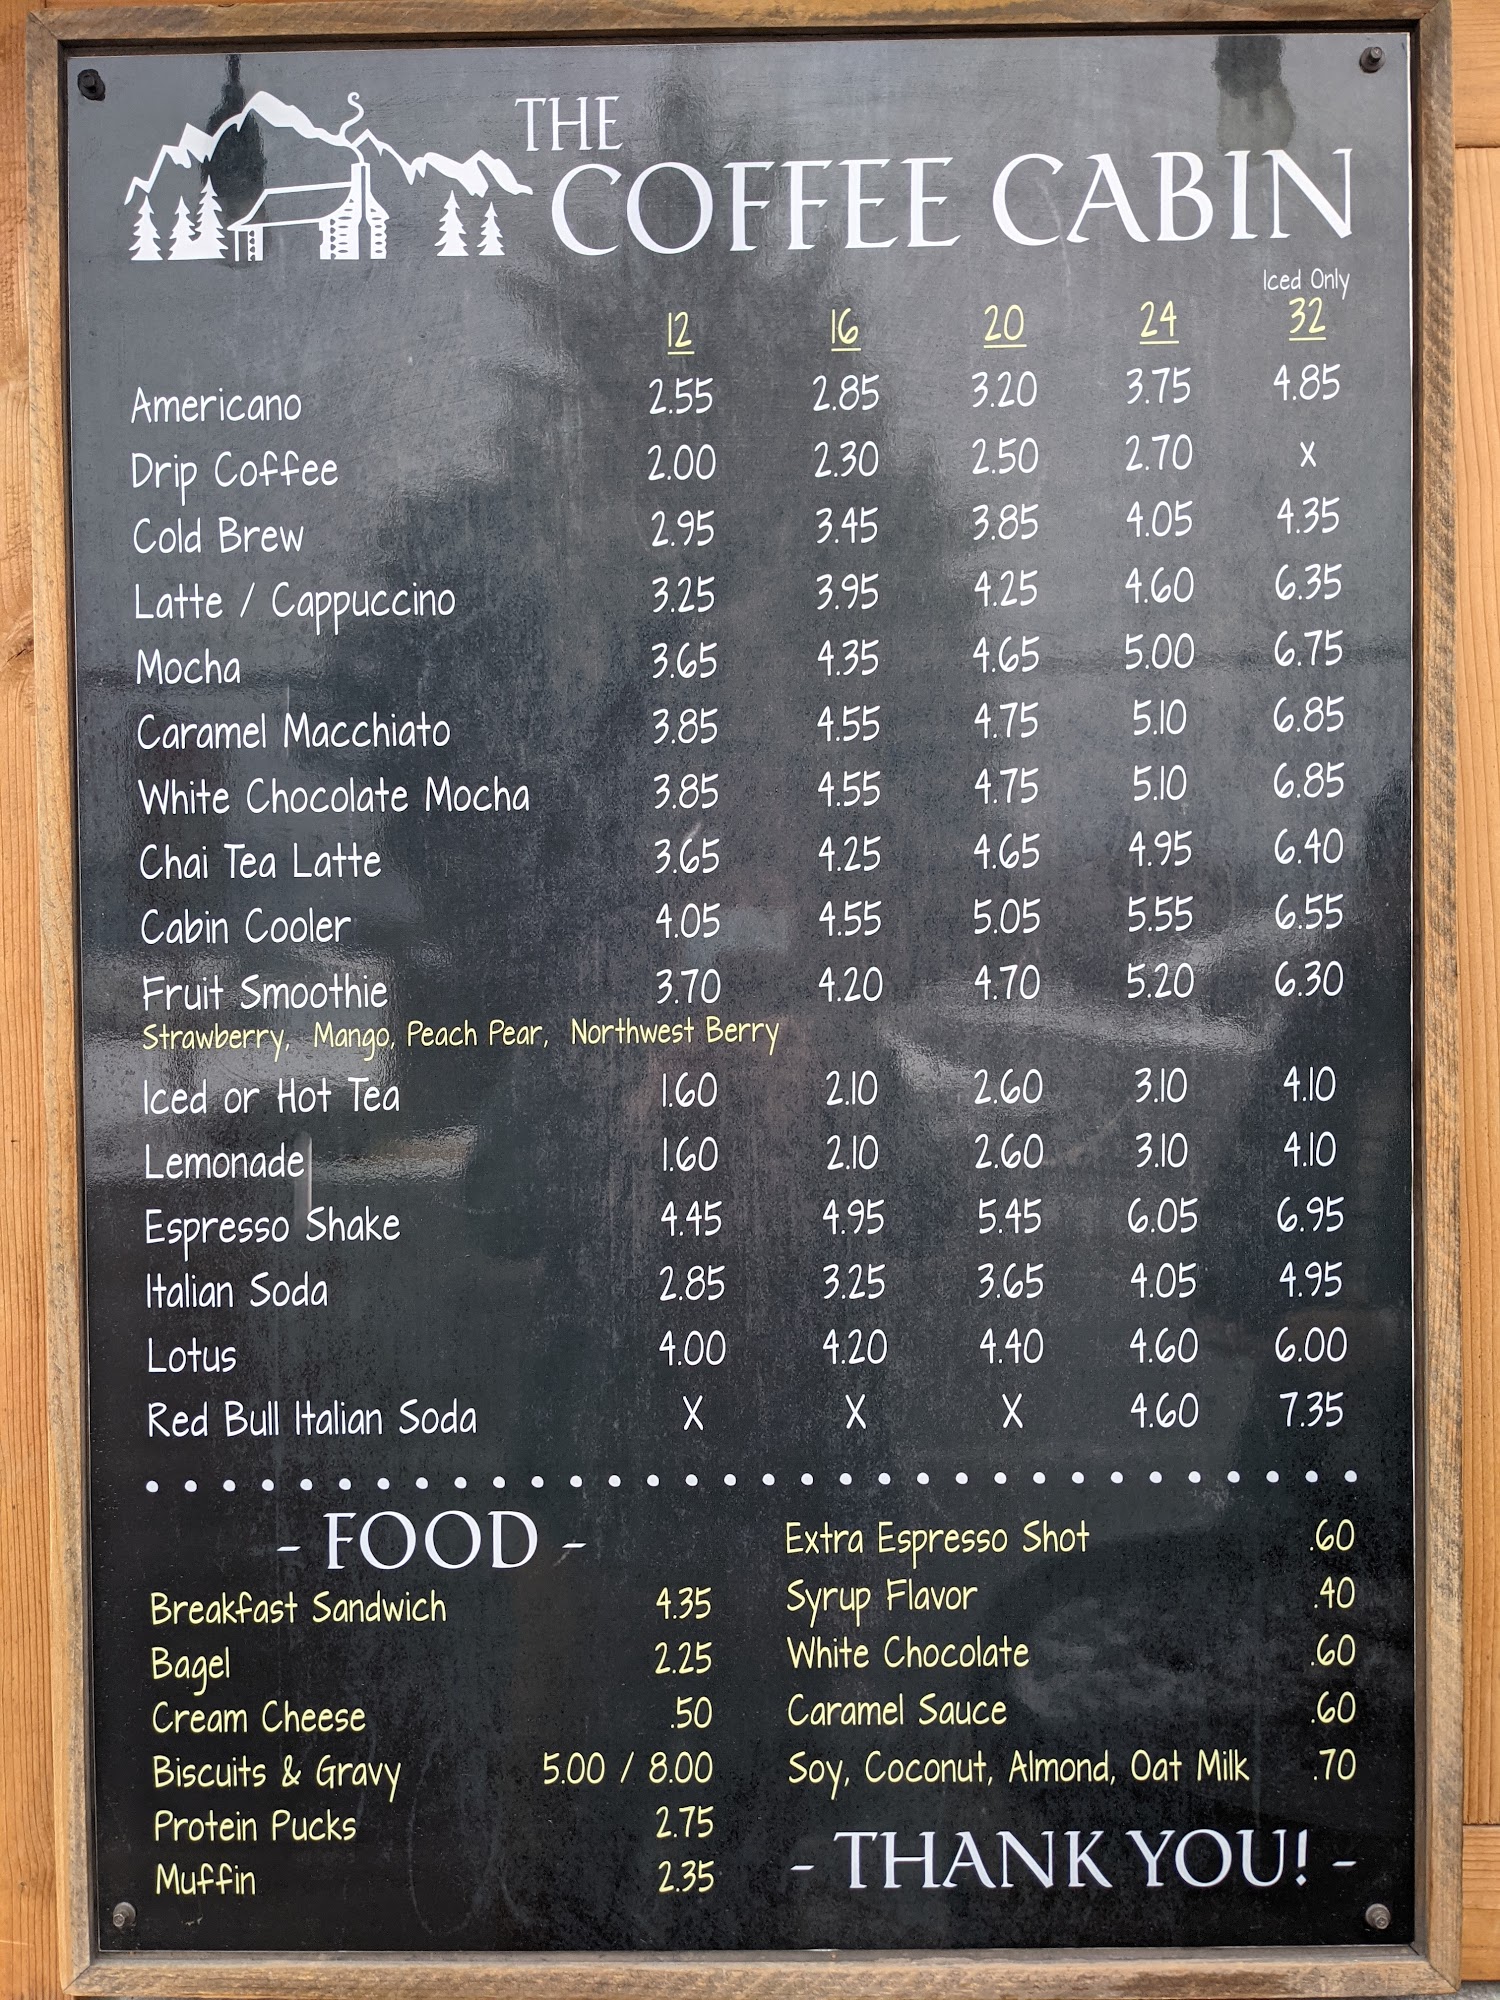 THE
COFFEE CABIN
Iced Only
12 16 20 24 32
Americano 2.55 2.85 3.20 3.75 4.85
Drip Coffee 2.00 2.30 2.50 2.70 x
Cold Brew 2.95 3.45 3.85 4.05 4.35
Latte / Cappuccino 3.25 3.95 4.25 4.60 6.35
Mocha 3.65 4.35 4.65 5.00 6.75
Caramel Macchiato 3.85 4.55 4.75 5.10 6.85
White Chocolate Mocha 3.85 4.55 4.75 5.10 6.85
Chai Tea Latte 3.65 4.25 4.65 4.95 6.40
Cabin Cooler 4.05 4.55 5.05 5.55 6.55
Fruit Smoothie 3.70 4.20 4.70 5.20 6.30
Strawberry, Mango, Peach Pear, Northwest Berry
Iced or Hot Tea 1.60 2.10 2.60 3.10 4.10
Lemonade 1.60 2.10 2.60 3.10 4.10
Espresso Shake 4.45 4.95 5.45 6.05 6.95
Italian Soda 2.85 3.25 3.65 4.05 4.95
Lotus 4.00 4.20 4.40 4.60 6.00
Red Bull Italian Soda X X X 4.60 7.35
- FOOD -
Breakfast Sandwich 4.35
Bagel 2.25
Cream Cheese .50
Biscuits & Gravy 5.00 / 8.00
Protein Pucks 2.75
Muffin 2.35
Extra Espresso Shot .60
Syrup Flavor .40
White Chocolate .60
Caramel Sauce .60
Soy, Coconut, Almond, Oat Milk .70
- THANK YOU! -